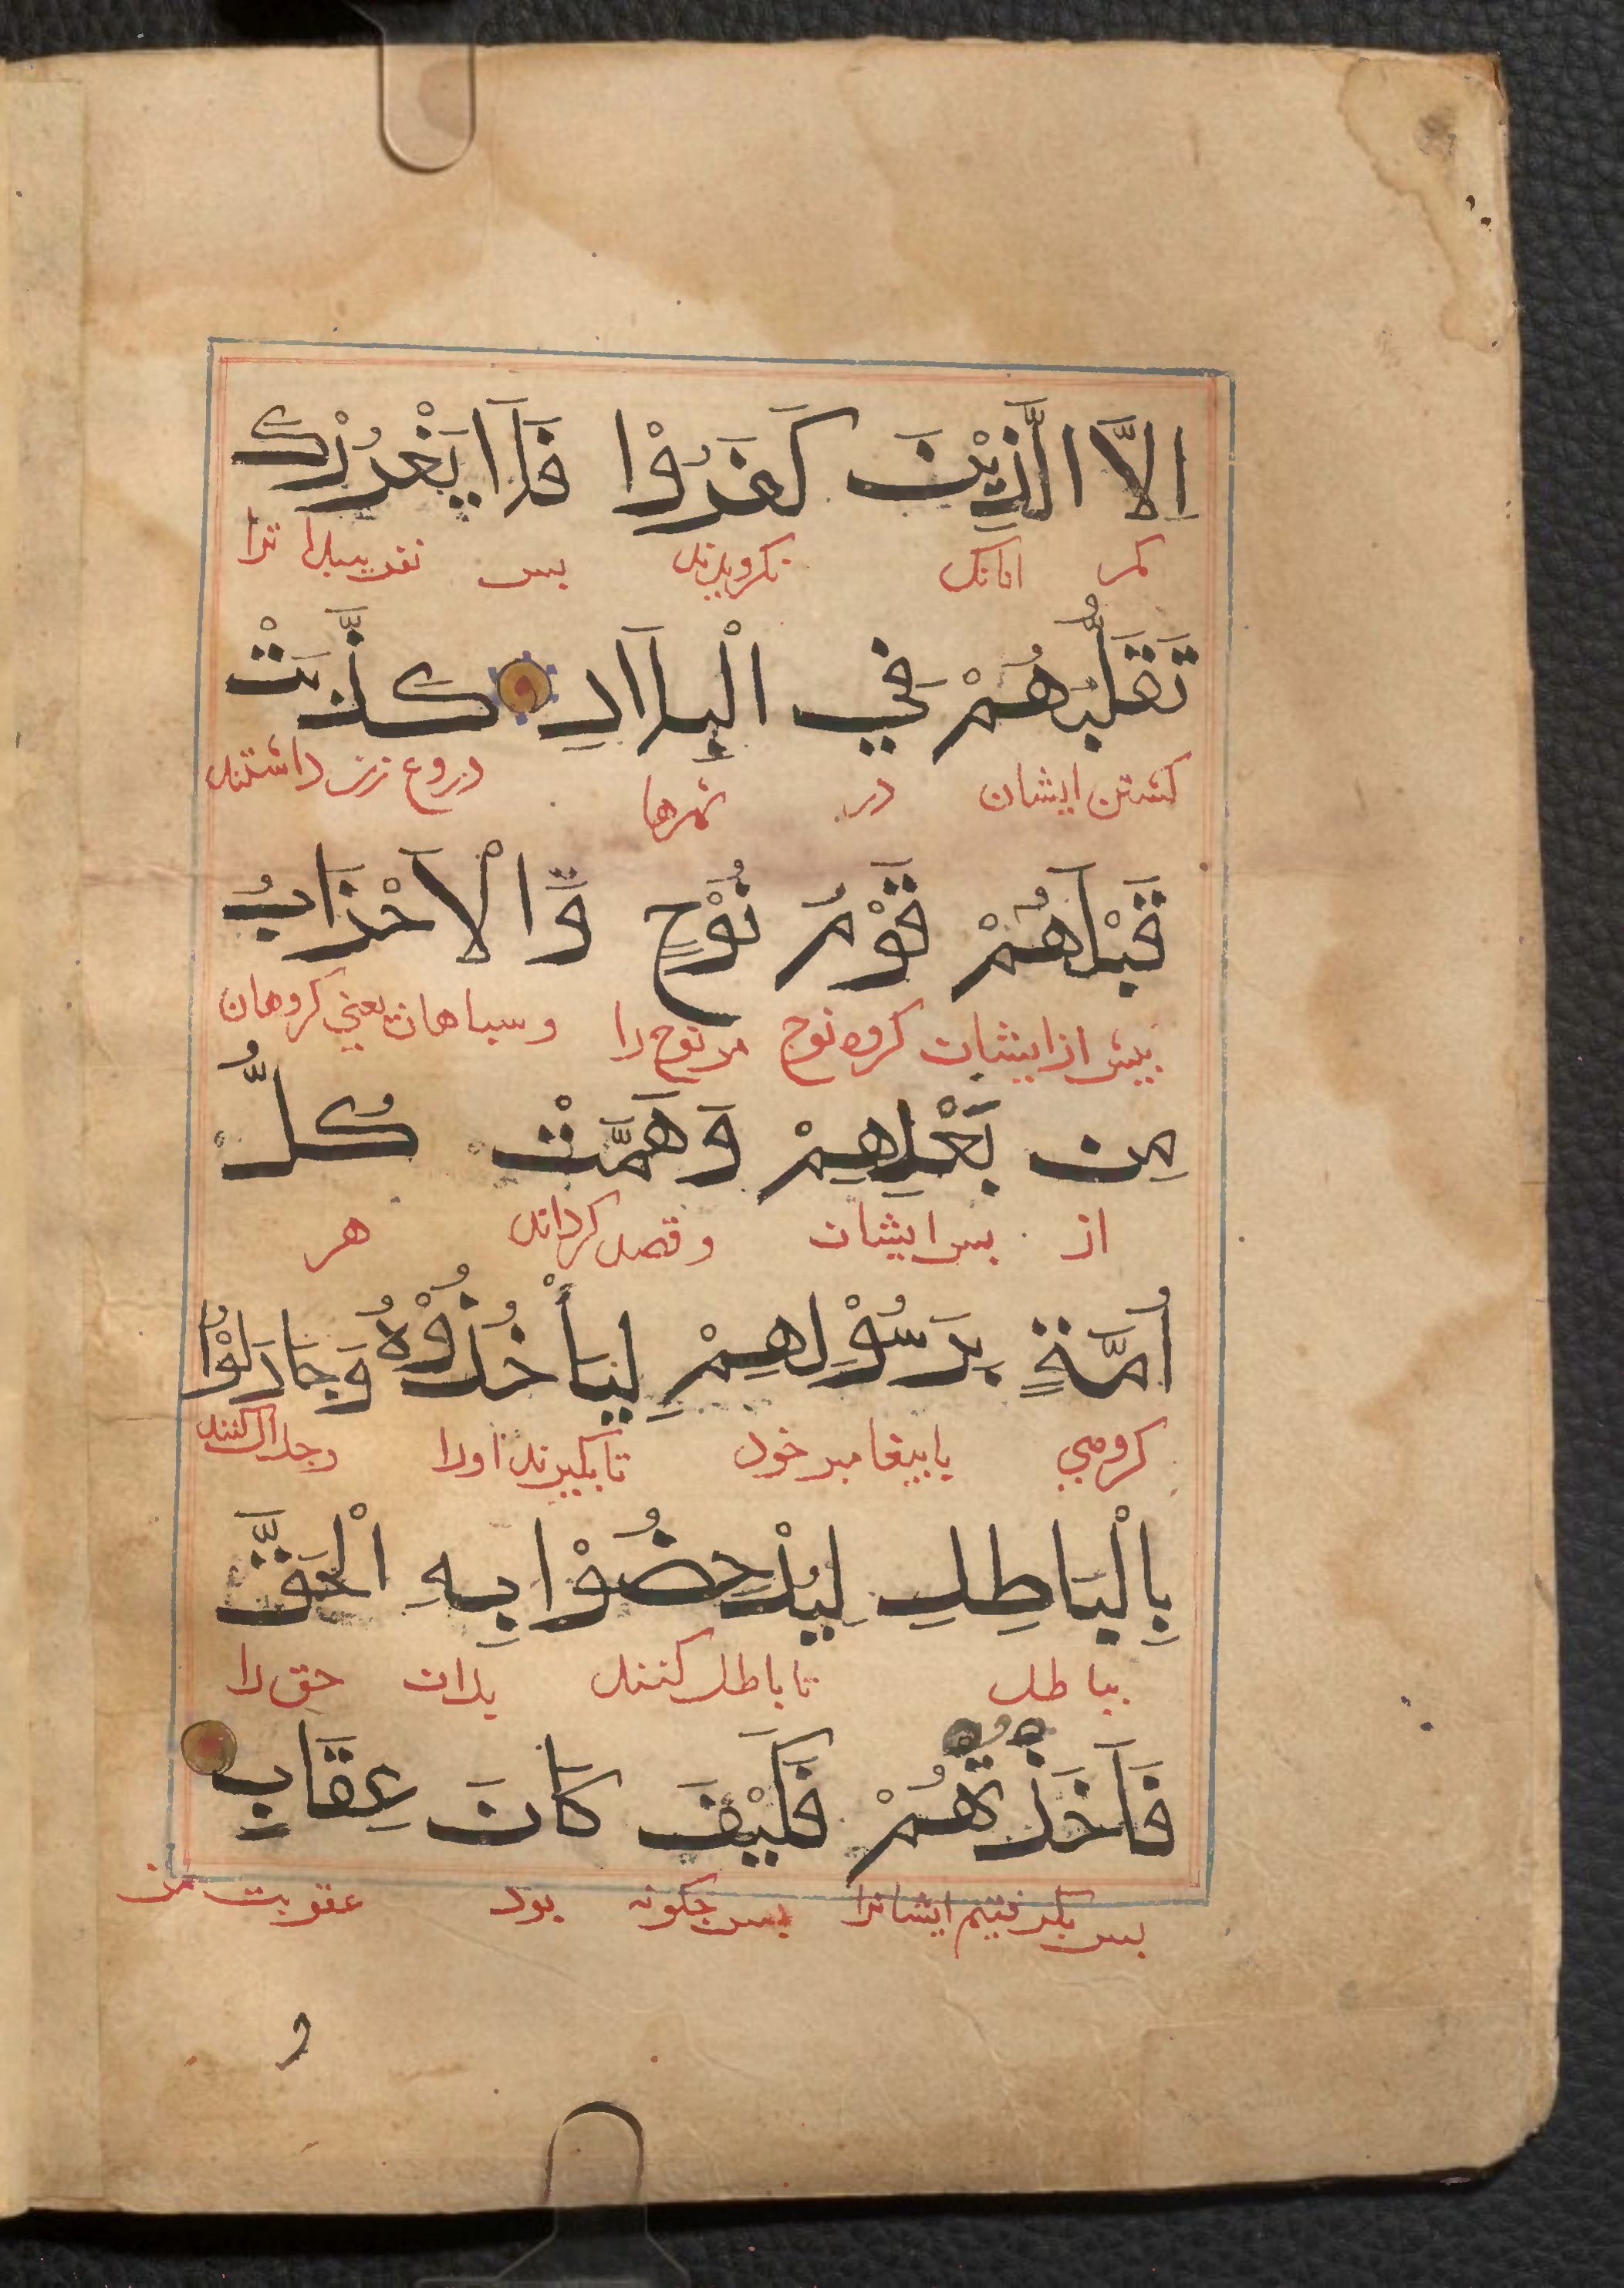 اِلَّا الَّذِيْنَ كَفَرُوْا فَلَا يَغْرُرْكَ
مکر انانک نکرویدند بس نفریبدا ترا
تَقَلُّبُهُمْ فِي الْبِلَادِ كَذَّبَتْ
کشتن ایشان در شهرها دروغ زن داشتند
قَبْلَهُمْ قَوْمُ نُوْحٍ وَّالْاَحْزَابُ
بیش از ایشان کروه نوح مر نوح را وسباهان یعنی کروهان
مِن بَعْدِهِمْ وَهَمَّتْ كُلُّ
از بس ایشان وقصد کردند هر
اُمَّةٍ بِرَسُوْلِهِمْ لِيَأْخُذُوْهُ وَجَادَلُوْا
کروهی بابیغامبر خود تا بکیرند اورا وجدال کنند
بِالْبَاطِلِ لِيُدْحِضُوْا بِهِ الْحَقَّ
بباطل تا باطل کنند بدان حق را
فَاَخَذْتُهُمْ فَكَيْفَ كَانَ عِقَابِ
بس بکرفتیم ایشانرا بس جکونه بود عقوبت من
و